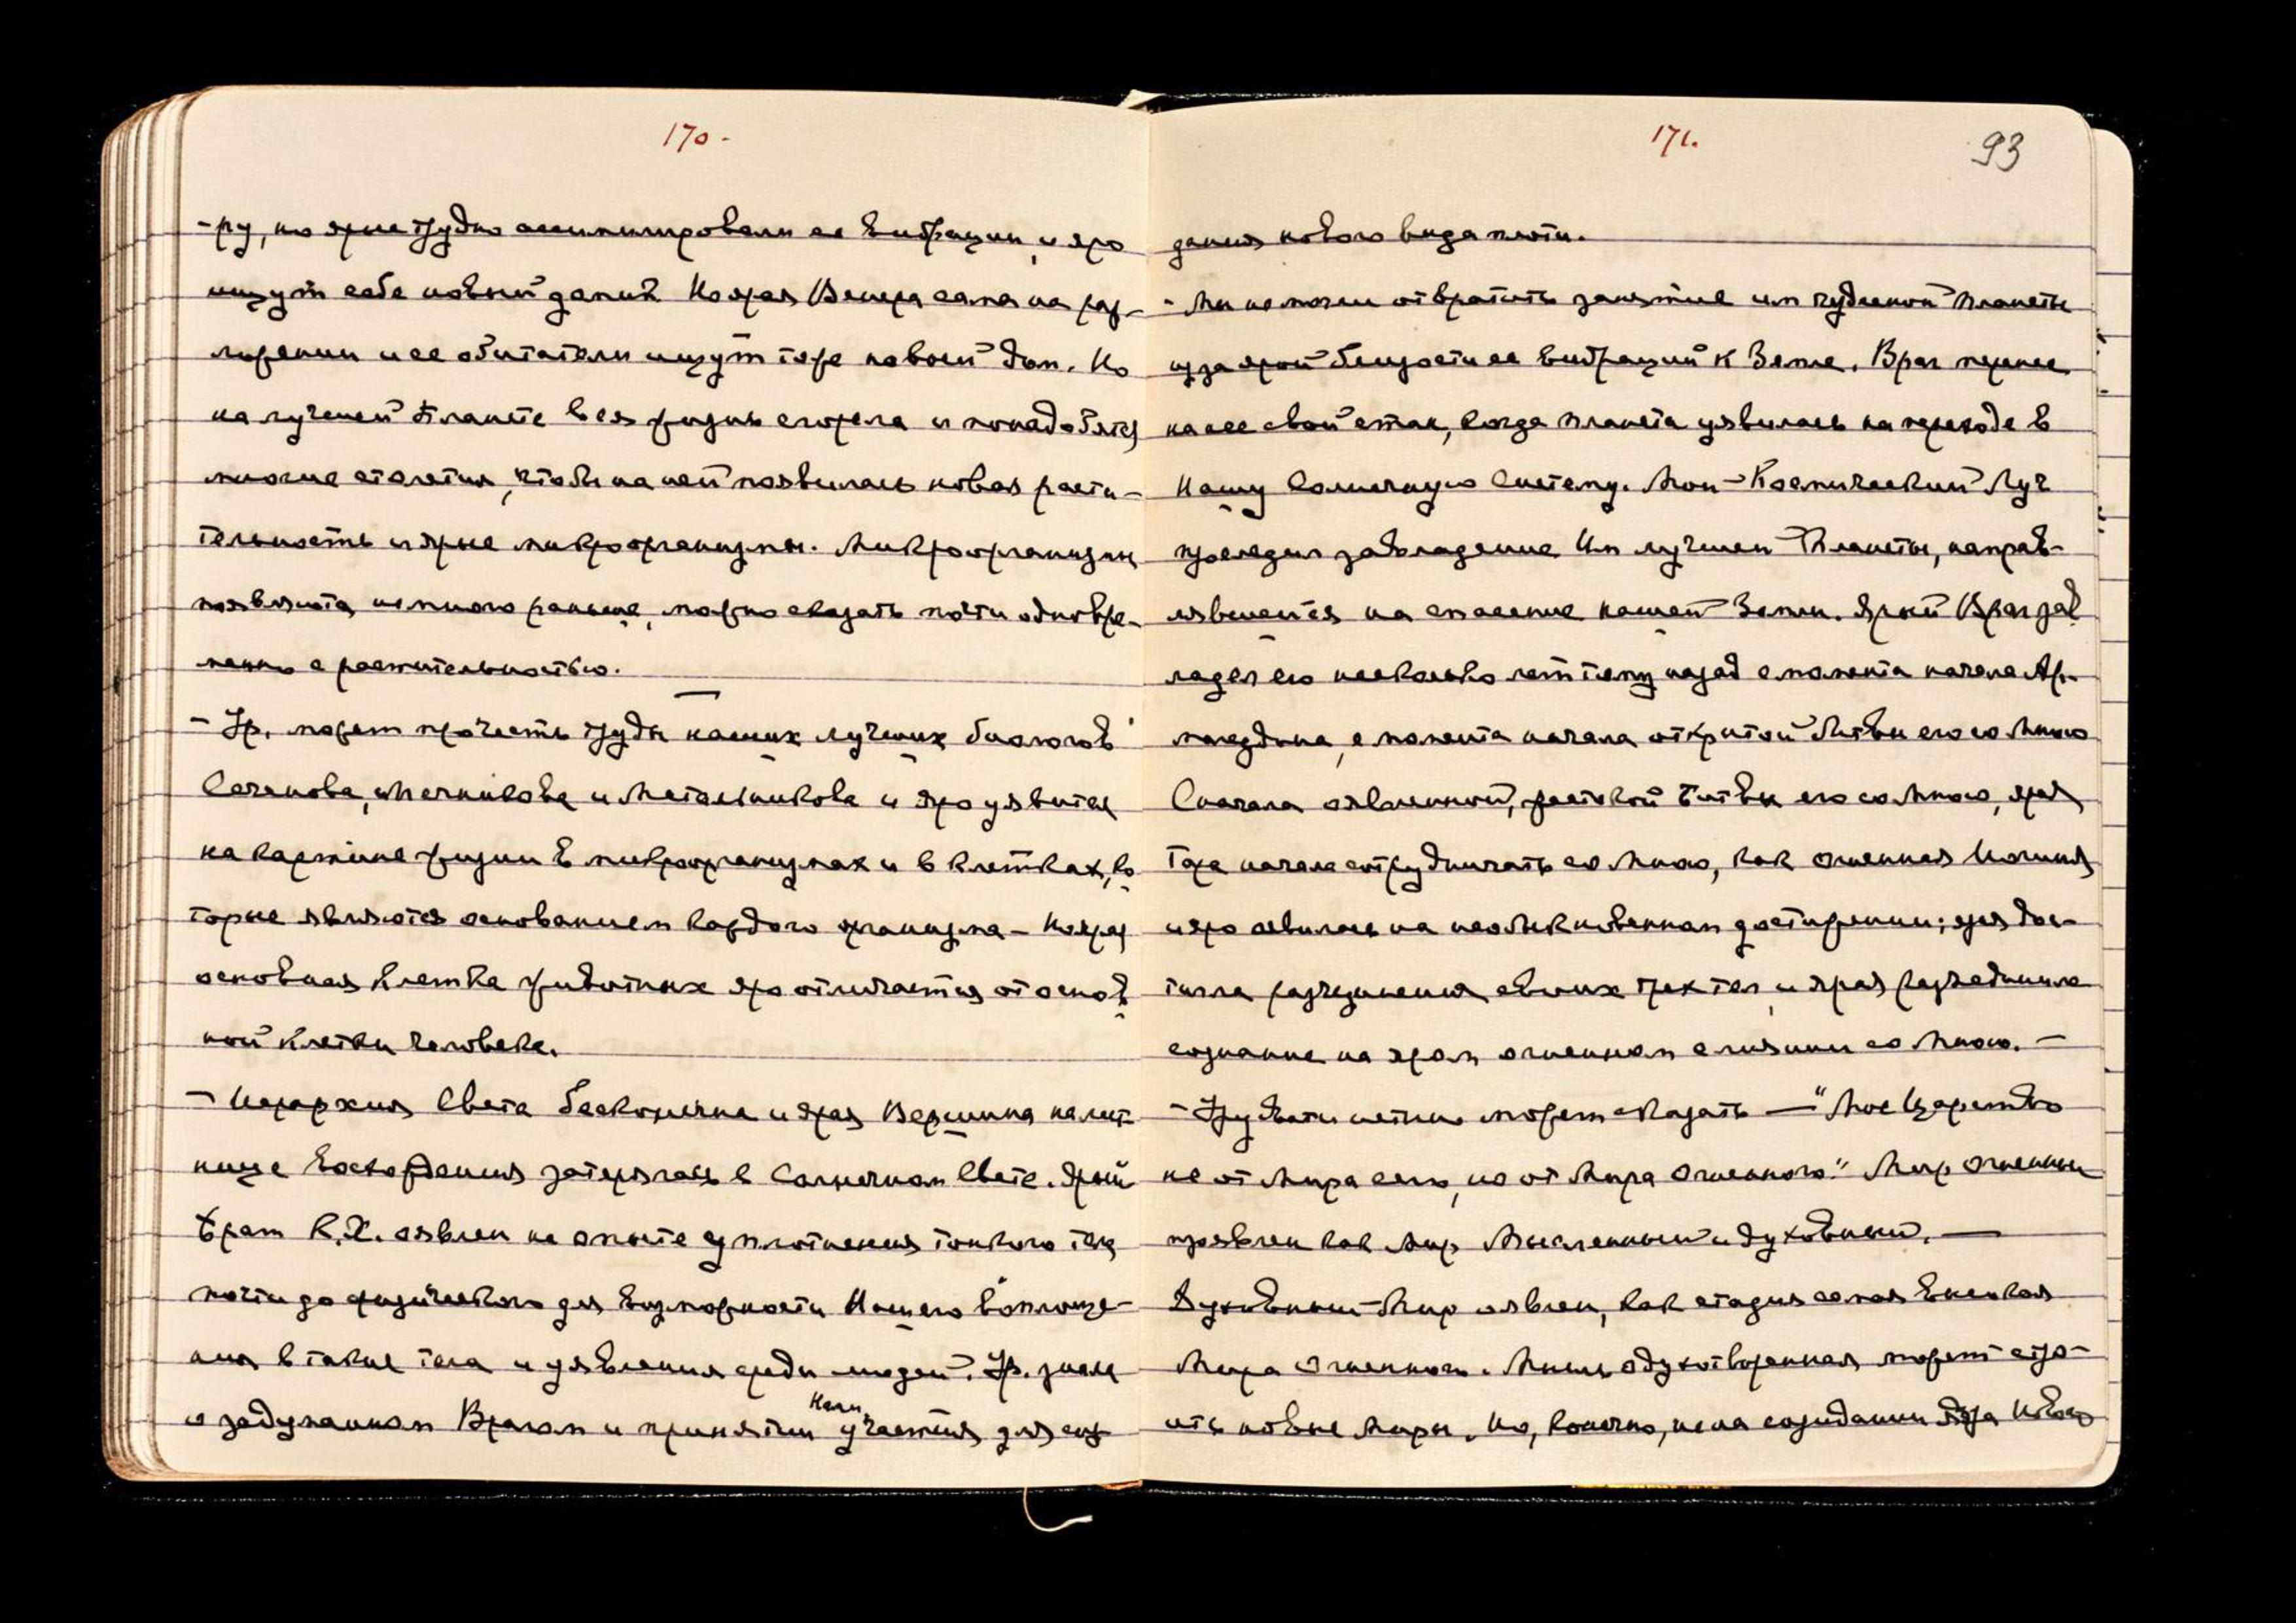 170.
-ру, но ярые трудно ассимилировали ее вибрации, и яро
ищут себе новый домик. Но ярая Венера сама на раз-
ложении и ее обитатели ищут тоже новый дом. Но
на лучшей Планете вся жизнь сгорела и понадобятся
многие столетия, чтобы на ней появилась новая расти-
тельность и ярые микроорганизмы. Микроорганизмы
появляются немного раньше, можно сказать почти одновре-
менно с растительностью.
- Ур. может прочесть труды наших лучших биологов
Сеченова, Мечникова и Метальникова и яро уявится
на картине жизни в микроорганизмах и в клетках, ко
торые являются основанием каждого организма - Но ярая
основная клетка животных яро отличается от основ
ной клетки человека.
- Иерархия Света бесконечна и ярая Вершина на лест-
нице восхождения затерялась в Солнечном Свете. Ярый
Брат К.Х. оявлен на опыте уплотнения тонкого тела
почти до физического для возможности Нашего воплоще-
ния в такие тела и уявления среди людей. Ур. знала
о задуманном Врагом и принятии Нами участия для соз-
171.
93
дания нового вида плоти.
- Мы не могли отвратить занятие им чудесной планеты
из за ярой близости ее вибраций к Земле. Враг перенес
на нее свой стан, когда планета уявилась на переходе в
Нашу Солнечную Систему. Мой Космический Луч
проследил завладение Им лучшей Планеты, направ-
лявшейся на спасение нашей Земли. Ярый Враг зав
ладел ею несколько лет тому назад с момента начала Ар-
магеддона, с момента начала открытой Битвы его со Мною
Сначала оявленной, жестокой битвы его со Мною, ярая
Тара начала сотрудничать со Мною, как огненная Йогиня
и яро явилась на необыкновенном достижении; ярая дос-
тигла разъединения своих трех тел и ярая разъединила
сознание на яром огненном слиянии со Мною. -
- Урусвати истинно может сказать — "Мое Царство
не от Мира сего, но от Мира Огненного." Мир Огненный
проявлен как Мир Мысленный и Духовный. —
Духовный Мир оявлен, как стадия самая высокая
Мира Огненного. Мысль одухотворенная может стро-
ить новые Миры. Но, конечно, не на созидании